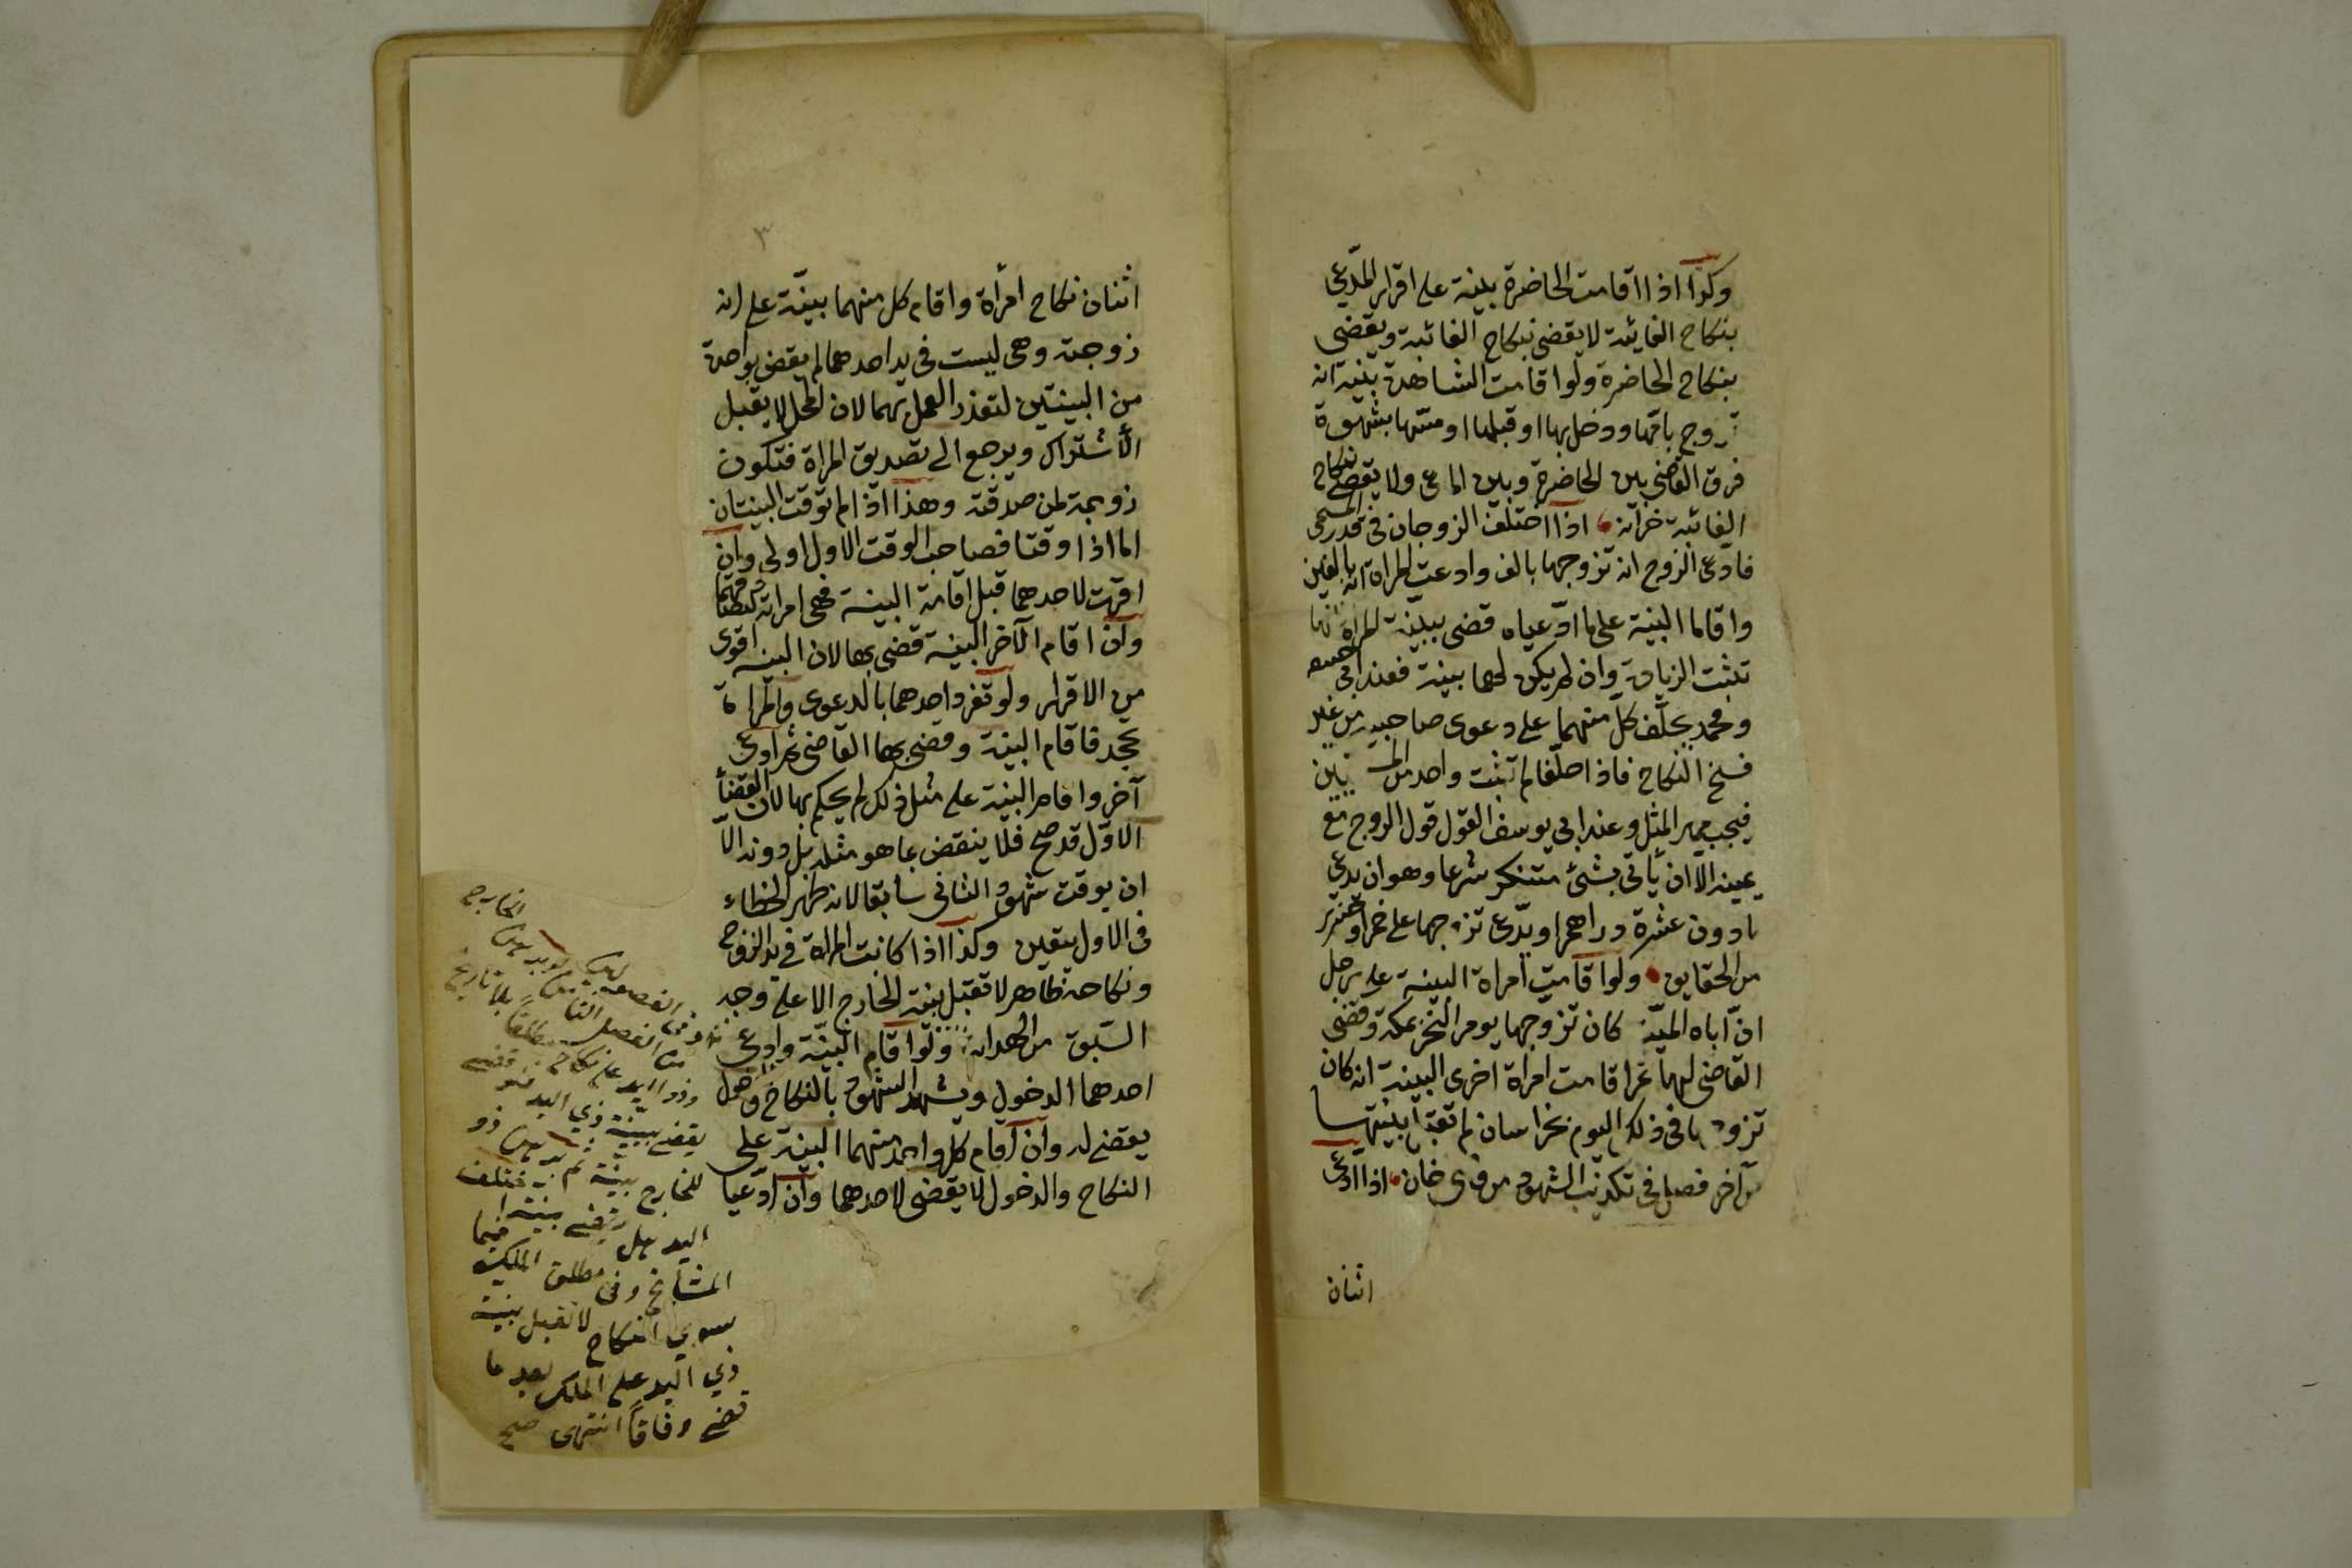 وكذا اذا اقامت الحاضرة بينة على اقرار المدّعي
بنكاح الغائبة لا يقضى بنكاح الغائبة ويقضى
بنكاح الحاضرة ولو اقامت الشاهدة بينة انه
تزوج بامّها ودخل بها او قبلها او مسّها بشهوة
فرق القاضى بين الحاضرة وبين المدعى ولا يقضى بنكاح
الغائبة خزانة اذا اختلف الزوجان فى قدر المسمى
فادعى الزوج انه تزوجها بالف وادعت المراة انه بالفين
واقاما البينة على ما ادّعياه قضى ببينة المراة انها
تثبت الزيادة وان لم يكن لهما بينة فعند ابى حنيفة
ومحمد يحلّف كلّ منهما على دعوى صاحبه من غير
فسخ النكاح فاذا حلفا لم تثبت واحد من
فيجب مهر المثل وعند ابى يوسف القول قول الزوج مع
يمينه الّا ان يأتى بشئ مستنكر شرعا وهو ان يدعى
مادون عشرة دراهم او يدّعى تزوجها على خمر او خنزير
من الحقايق ولو اقامت امراة البينة على رجل
انّ اباه الميّت كان تزوجها يوم النحر بمكة وقضى
القاضى لها ثم اقامت امراة اخرى البينة انه كان
تزوجها فى ذلك اليوم بخراسان لم تقبل بينتها
من آخر فصل فى تكذيب الشهود من قاضى خان اذا ادعى
اثنان
٣
اثنان نكاح امرأة واقام كل منهما بينة على انه
زوجته وهى ليست فى يد احدهما لم يقض بواحدة
من البينتين لتعذر العمل بهما لان المحل لا يقبل
الأشتراك ويرجع الى تصديق المراة فتكون
زوجة لمن صدقته وهذا اذا لم توقت البينتان
اما اذا وقتا فصاحب الوقت الاول اولى وان
اقرت لاحدهما قبل اقامة البينة فهى امراته لتصادقهما
وان اقام الآخر البينة قضى بها لان البينة اقوى
من الاقرار ولو تفرد احدهما بالدعوى والمراة
تجحد فاقام البينة وقضى بها القاضى ثم ادعى
آخر واقام البينة على مثل ذلك لم يحكم بها لان القضأ
الاوّل قد صح فلا ينقض بما هو مثله بل دونه الّا
ان يوقت شهود الثانى سابقا لانه ظهر الخطاء
فى الاول بيقين وكذا اذا كانت المراة فى يد الزوج
ونكاحه ظاهر لا تقبل بينة الخارج الا على وجه
السّبق من الهداية ولو اقام البيّنة وادعى
احدهما الدخول ويشهد الشهود بالنكاح والدخول
يقضى له وان اقام كلّ واحد منهما البينة على
النكاح والدخول لا يقضى لاحدهما وان ادّعيا
الخارج
وذو اليد على نكاح مطلقا بلا تاريخ
يقضى ببينة ذي اليد فلو قضى
للخارج ببينة ثم برهن ذو
اليد هل يقضى ببينة اختلف فيها
المشايخ وفى مطلق الملك
سوى النكاح لا تقبل بينة
ذي اليد على الملك بعد ما
قضى وفاقاً انتهى صح